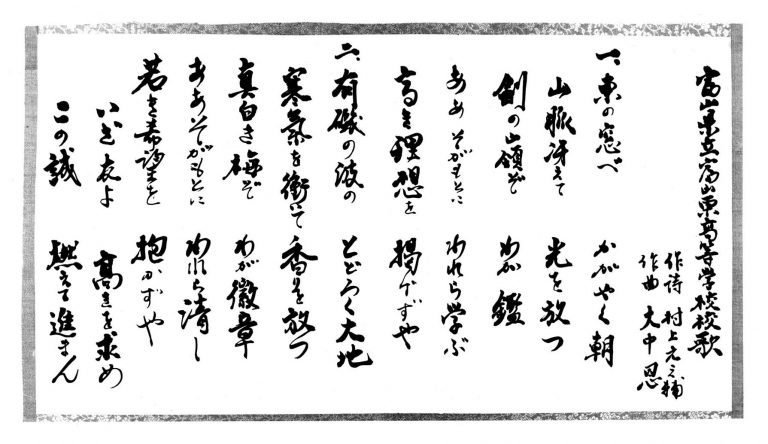 富山県立富山東高等学校校歌
作詩 村上元之輔
作曲 大中 恩
一、東の窓べ かがやく朝
山脈冴えて 光を放つ
剣の山嶺ぞ わが鑑
ああ そがもとに われら学ぶ
高き理想を 掲げずや
二、有磯の波の とどろく大地
寒気を衝いて 香りを放つ
真白き梅ぞ わが徽章
ああ そがもとに われら清し
若き希望を 抱かずや
いざ友よ 高きを求め
この誠 燃えて進まん